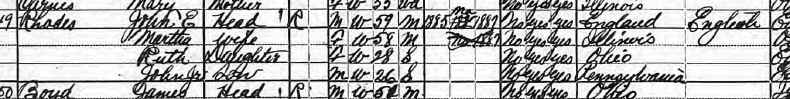 Mary Mother F W 53 Wd No yes yes Illinois
49 Rhodes John E Head 1 R M W 59 M 1885 Na 1887 No yes yes England English
Martha Wife F W 58 M No yes yes Illinois
Ruth Daughter F W 28 S No yes yes Ohio
John Jr Son M W 26 S No yes yes Pennsylvania
50 Boyd James Head R M W M No yes yes Ohio